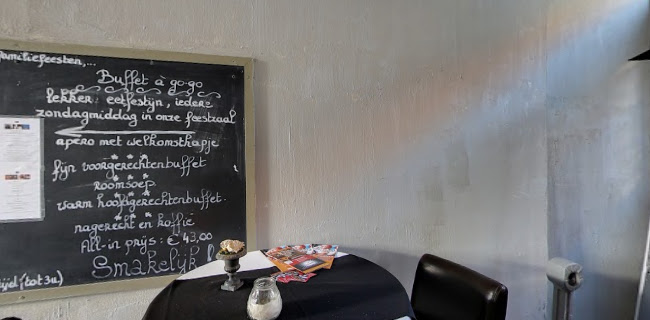 familiefeesten,...
Buffet à go-go
lekker eetfestijn, iedere
zondagmiddag in onze feestzaal
apero met welkomsthapje
fijn voorgerechtenbuffet
roomsoep
warm hoofdgerechtenbuffet.
nagerecht en koffie
All-in prijs: € 43,00
Smakelijk!
(tot 3u)